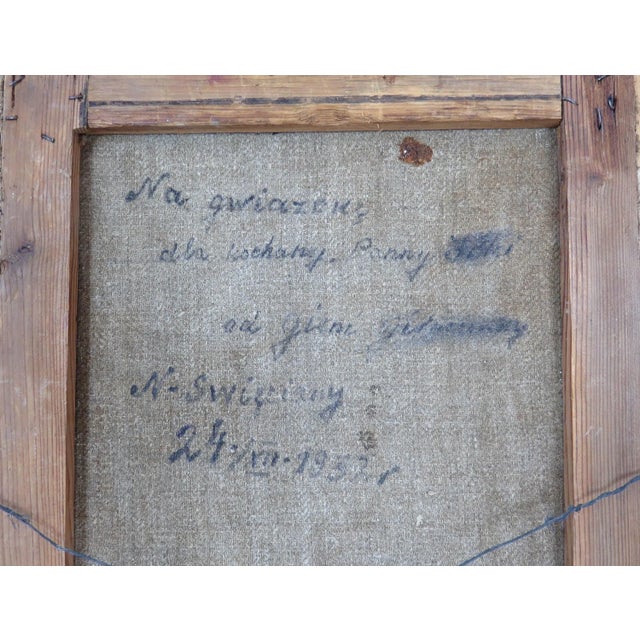 Na gwiazdkę
dla kochany. Panny
od Gieni
N-Święciany
24/XII-1932.r